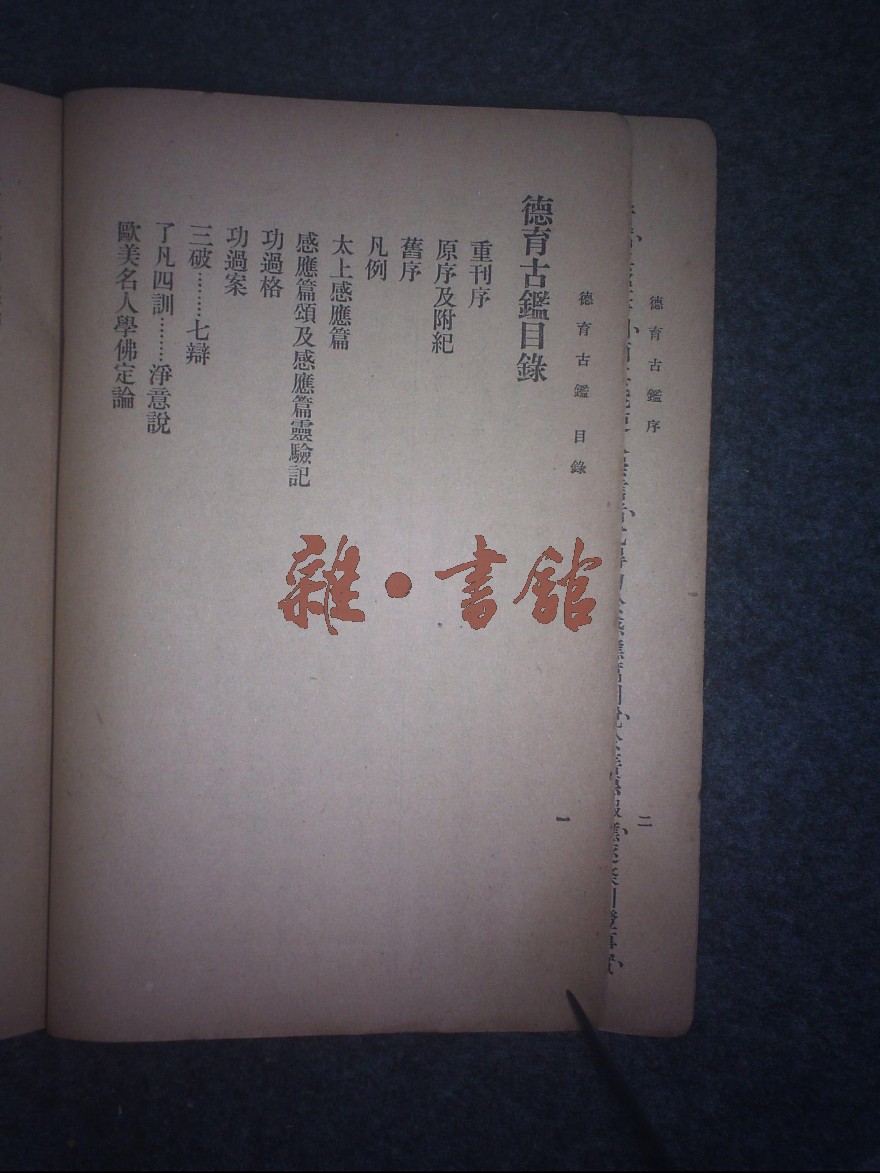 德育古鑑序
二
德育古鑑 目錄
一
德育古鑑目錄
重刊序
原序及附紀
舊序
凡例
太上感應篇
感應篇頌及感應篇靈驗記
功過格
功過案
三破………七辯
了凡四訓………淨意說
歐美名人學佛定論
雜·書館